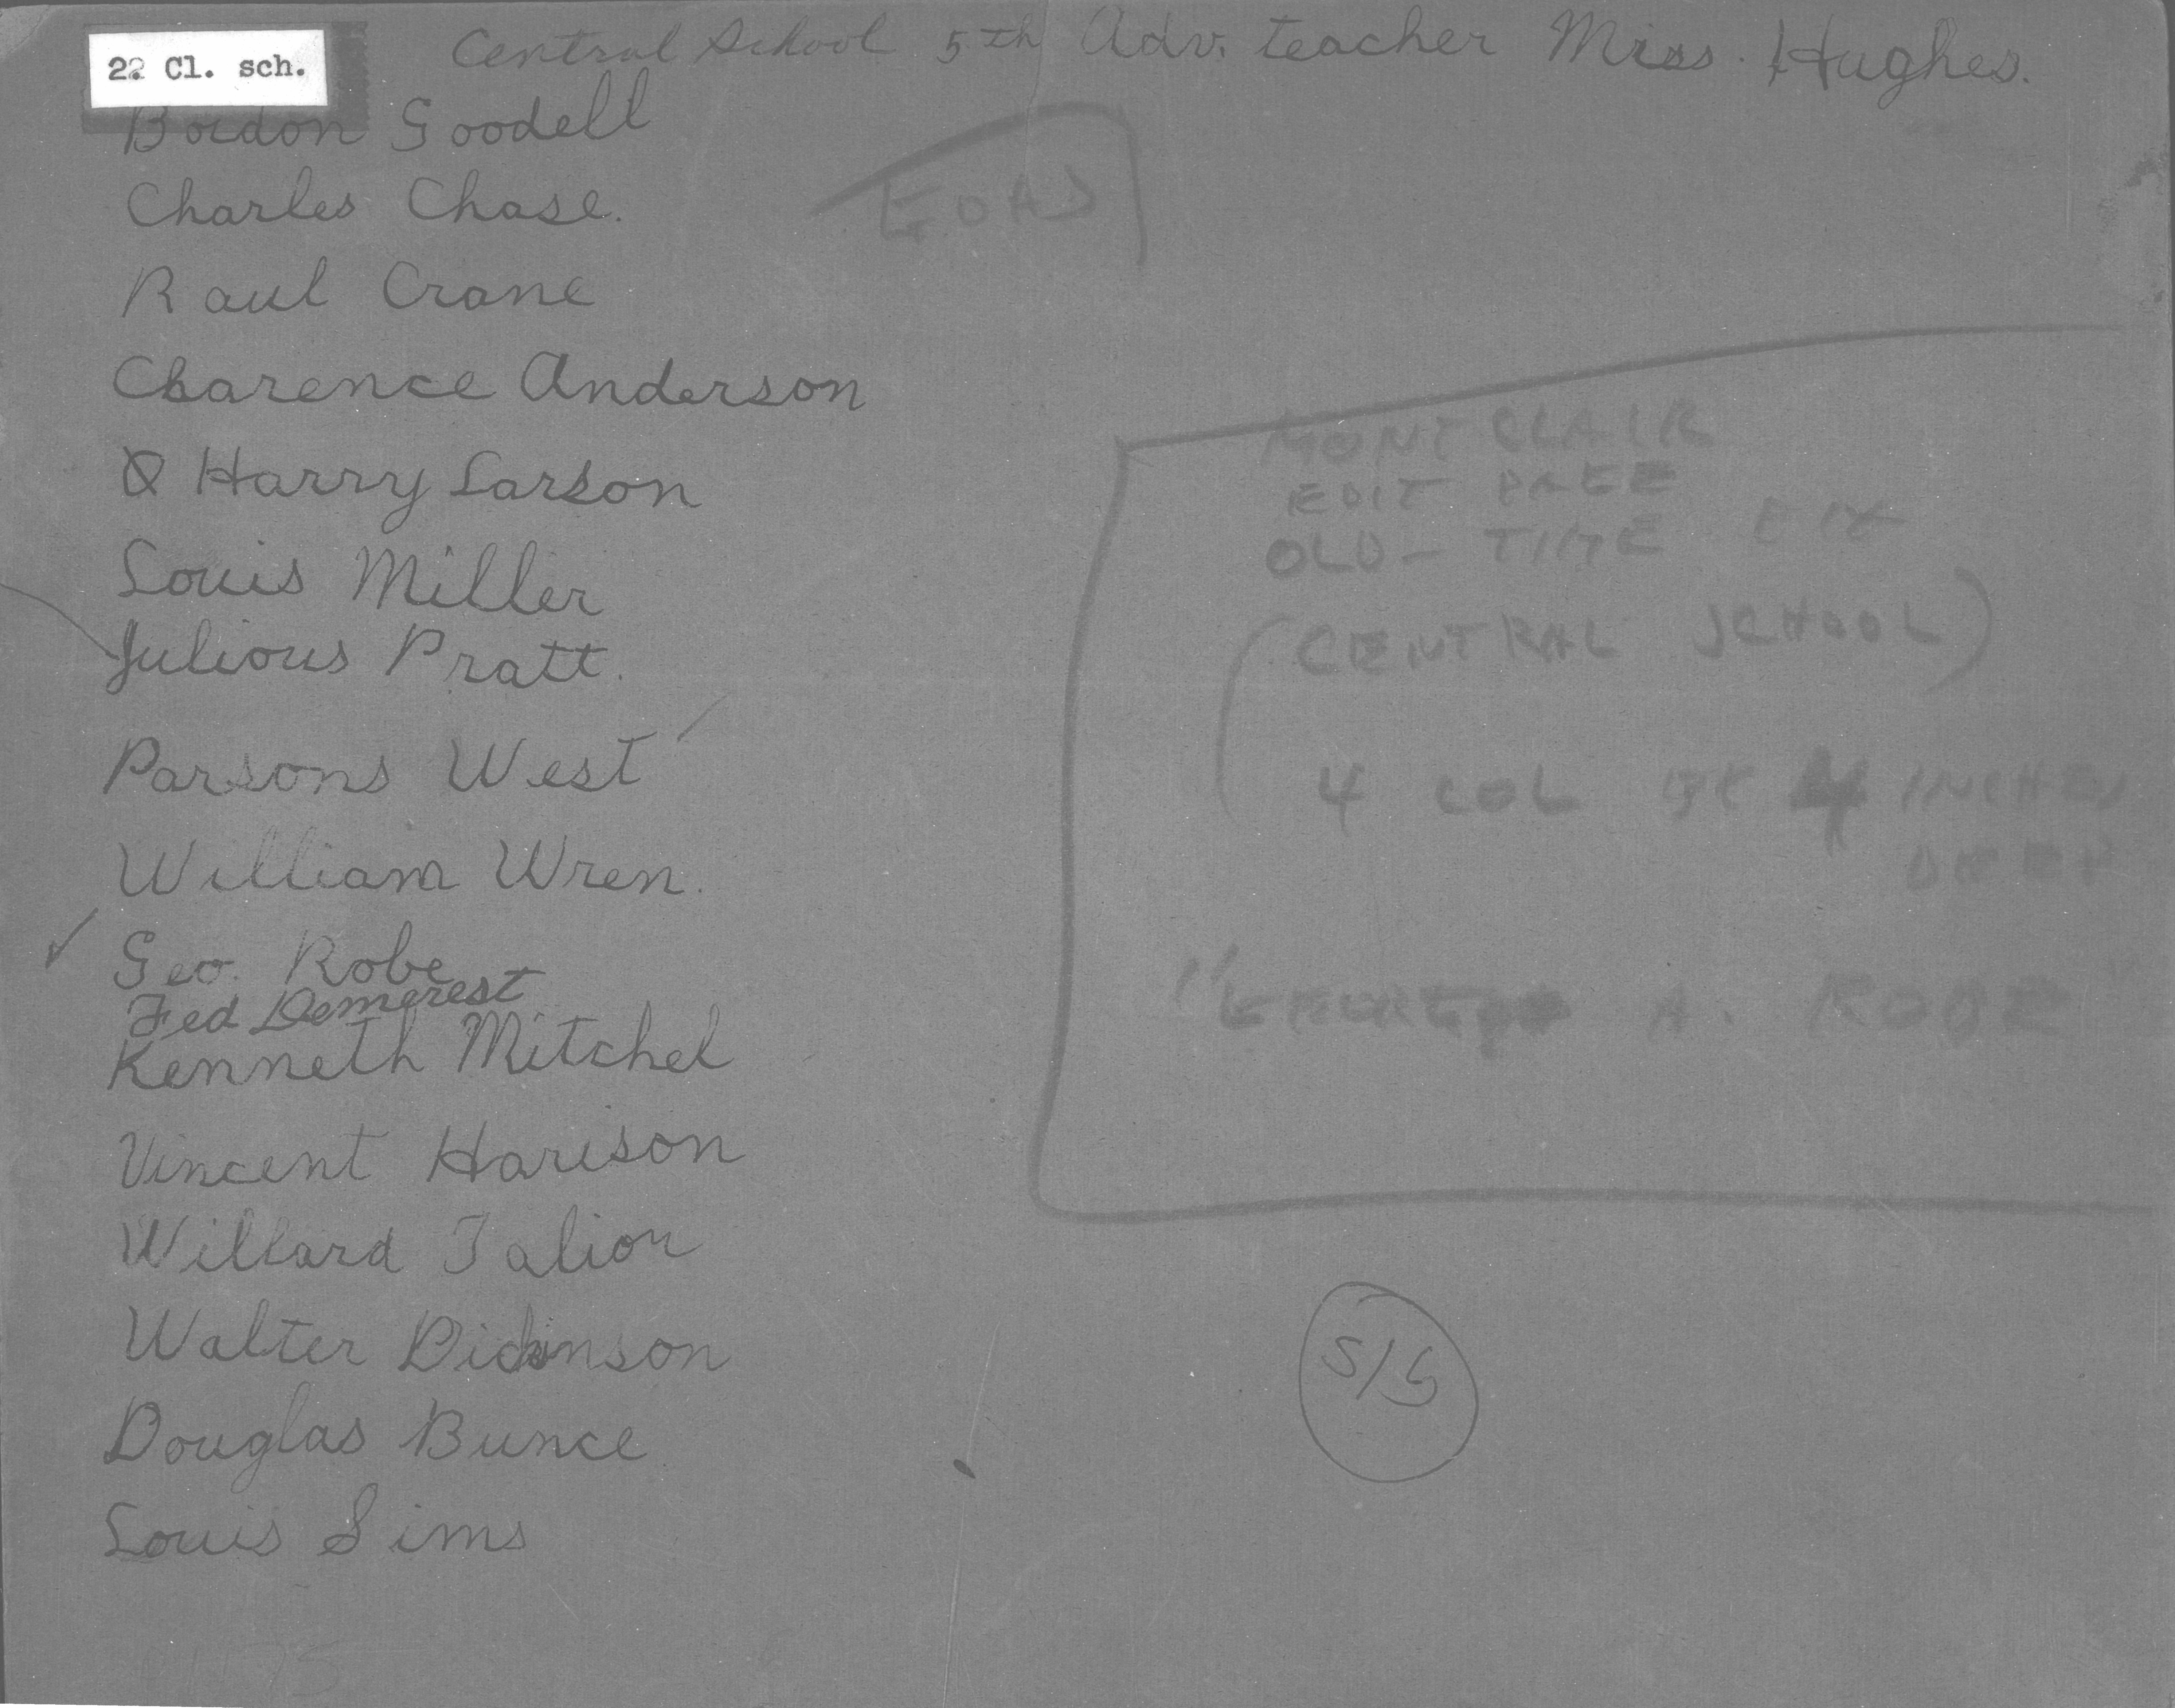 22 Cl. sch.
Central School 5th Adv. teacher Miss. Hughes.
Bordon Goodell
Charles Chase.
Raul Crane
Clarence Anderson
Harry Larson
Louis Miller
Julious Pratt.
Parsons West
William Wren.
Geo. Robe
Fed Demerest
Kenneth Mitchel
Vincent Harison
Willard Talior
Walter Dickinson
Douglas Bunce
Louis Sims
MONTCLAIR
EDIT PAGE
OLD-TIME PIX
(CENTRAL SCHOOL)
4 COL BY 4 INCHES
DEEP
"GEORGE A. ROBE"
5/6